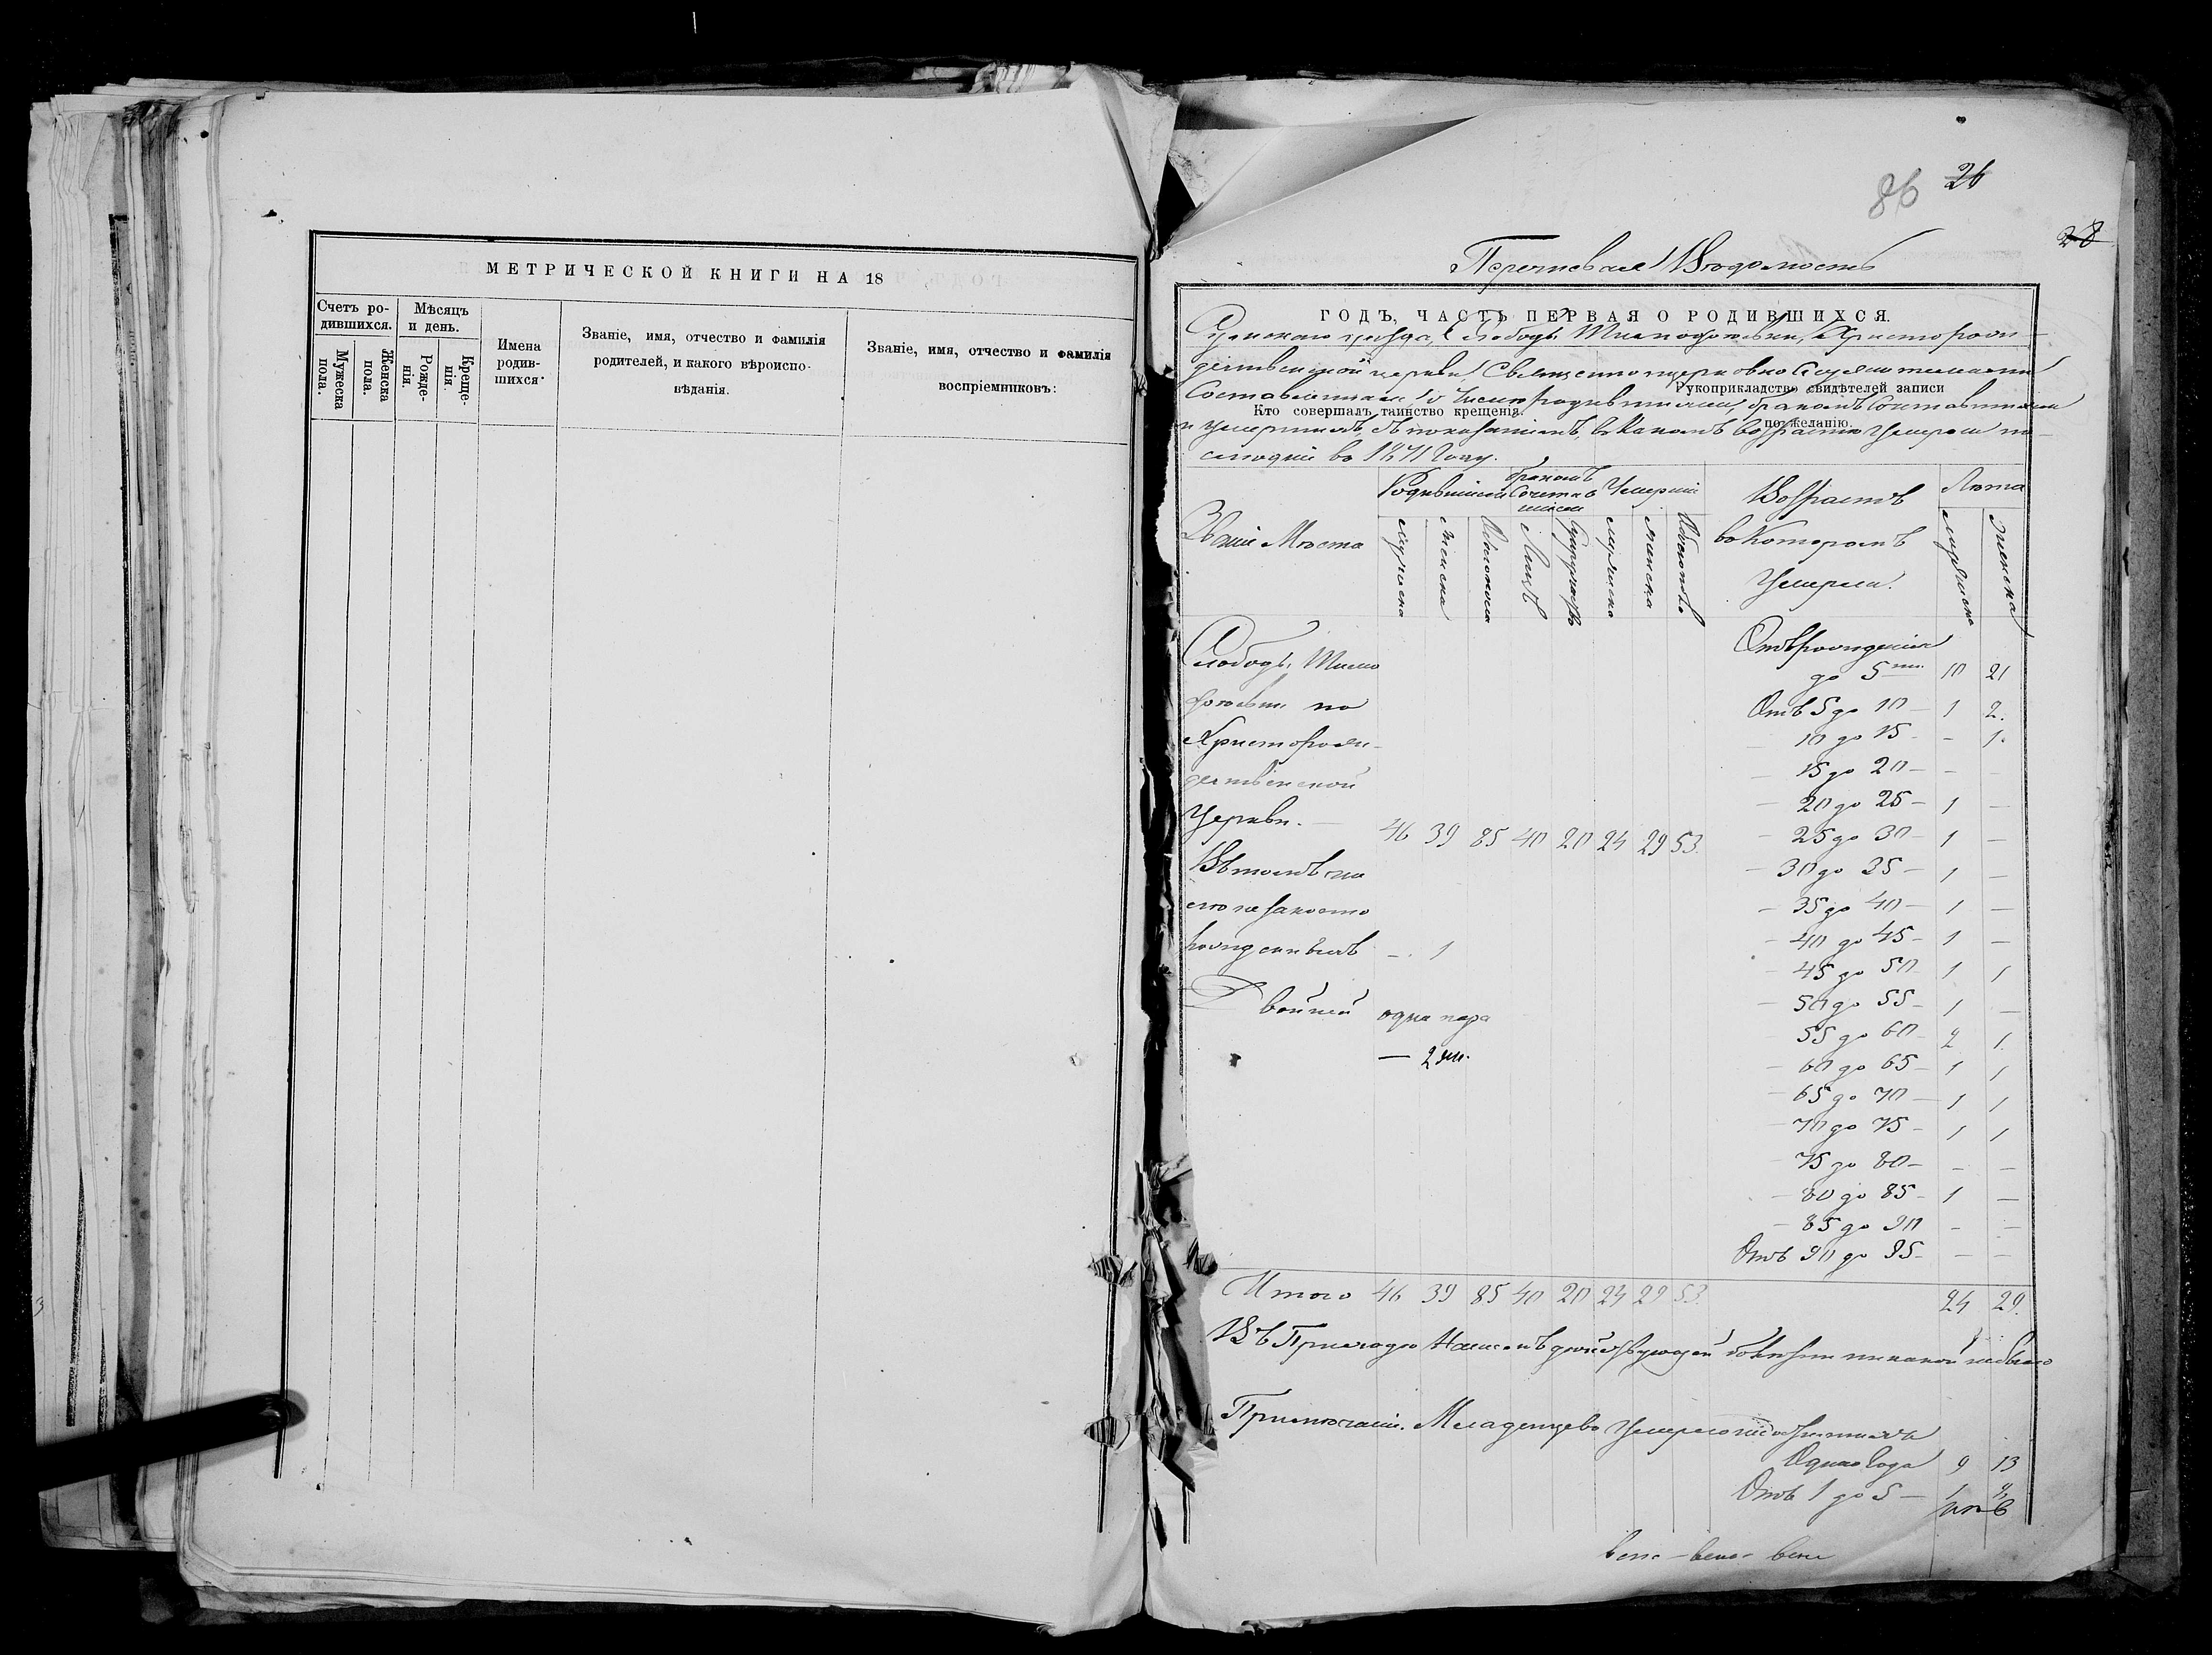 МЕТРИЧЕСКОЙ КНИГИ НА 18
Счетъ ро-
дившихся.
Мѣсяцъ
и день.
Мужеска
пола.
Женска
пола.
Рожде-
нія.
Креще-
нія.
Имена
родив-
шихся.
Званіе, имя, отчество и фамилія
родителей, и какого вѣроиспо-
вѣданія.
Званіе, имя, отчество и фамилія
воспріемниковъ:
86 26
28
Перечневая Вѣдомость
ГОДЪ, ЧАСТЬ ПЕРВАЯ О РОДИВШИХСЯ.
уѣзда, Слободы Христорож-
дественской церкви, Священно церковно Служителями
Рукоприкладство свидѣтелей записи
Составленная, о числѣ родившихся, бракомъ Сочетавшихся
Кто совершалъ таинство крещенія.
по желанію.
и умершихъ, съ показаніемъ, въ какомъ возрастѣ Умерли
во 1871 году.
Званіе Мѣста
Родившихся
бракомъ
Сочетав
шихся
Умершихъ
Возрастъ
въ Которомъ
Умерли.
Лѣта
мужеска
женска
Обоего пола
Лицъ
Супружествъ
мужеска
женска
Обоего пола
мужеска
женска
Слободы
по
Христорож-
дественской
Церкви. 46 39 85 40 20 24 29 53.
Въ томъ чис
лѣ незаконно
рожденныхъ - 1
Двойней одна пара
— 2 ж.
Отъ рожденія
до 5 ти. 10 21
Отъ 5 до 10 — 1 2.
— 10 до 15 - - 1.
— 15 до 20 — - -
— 20 до 25 — 1 —
— 25 до 30 — 1 —
— 30 до 35 — 1 —
— 35 до 40 — 1 —
— 40 до 45 — 1 —
— 45 до 50 1 1
— 50 до 55 — 1 —
— 55 до 60 2 1.
— 60 до 65 — 1 1
— 65 до 70 — 1 1
— 70 до 75 — 1 1
— 75 до 80 — - —
— 80 до 85 — 1 —
— 85 до 90 - —
Отъ 90 до 95 — — —
Итого 46 39 85 40 20 24 29 53. 24 29.
Въ Приходѣ Нашемъ болѣзни никакой не было
Примѣчаніе. Младенцевъ Умерло
Одного года 9 13
Отъ 1 до 5 — 1